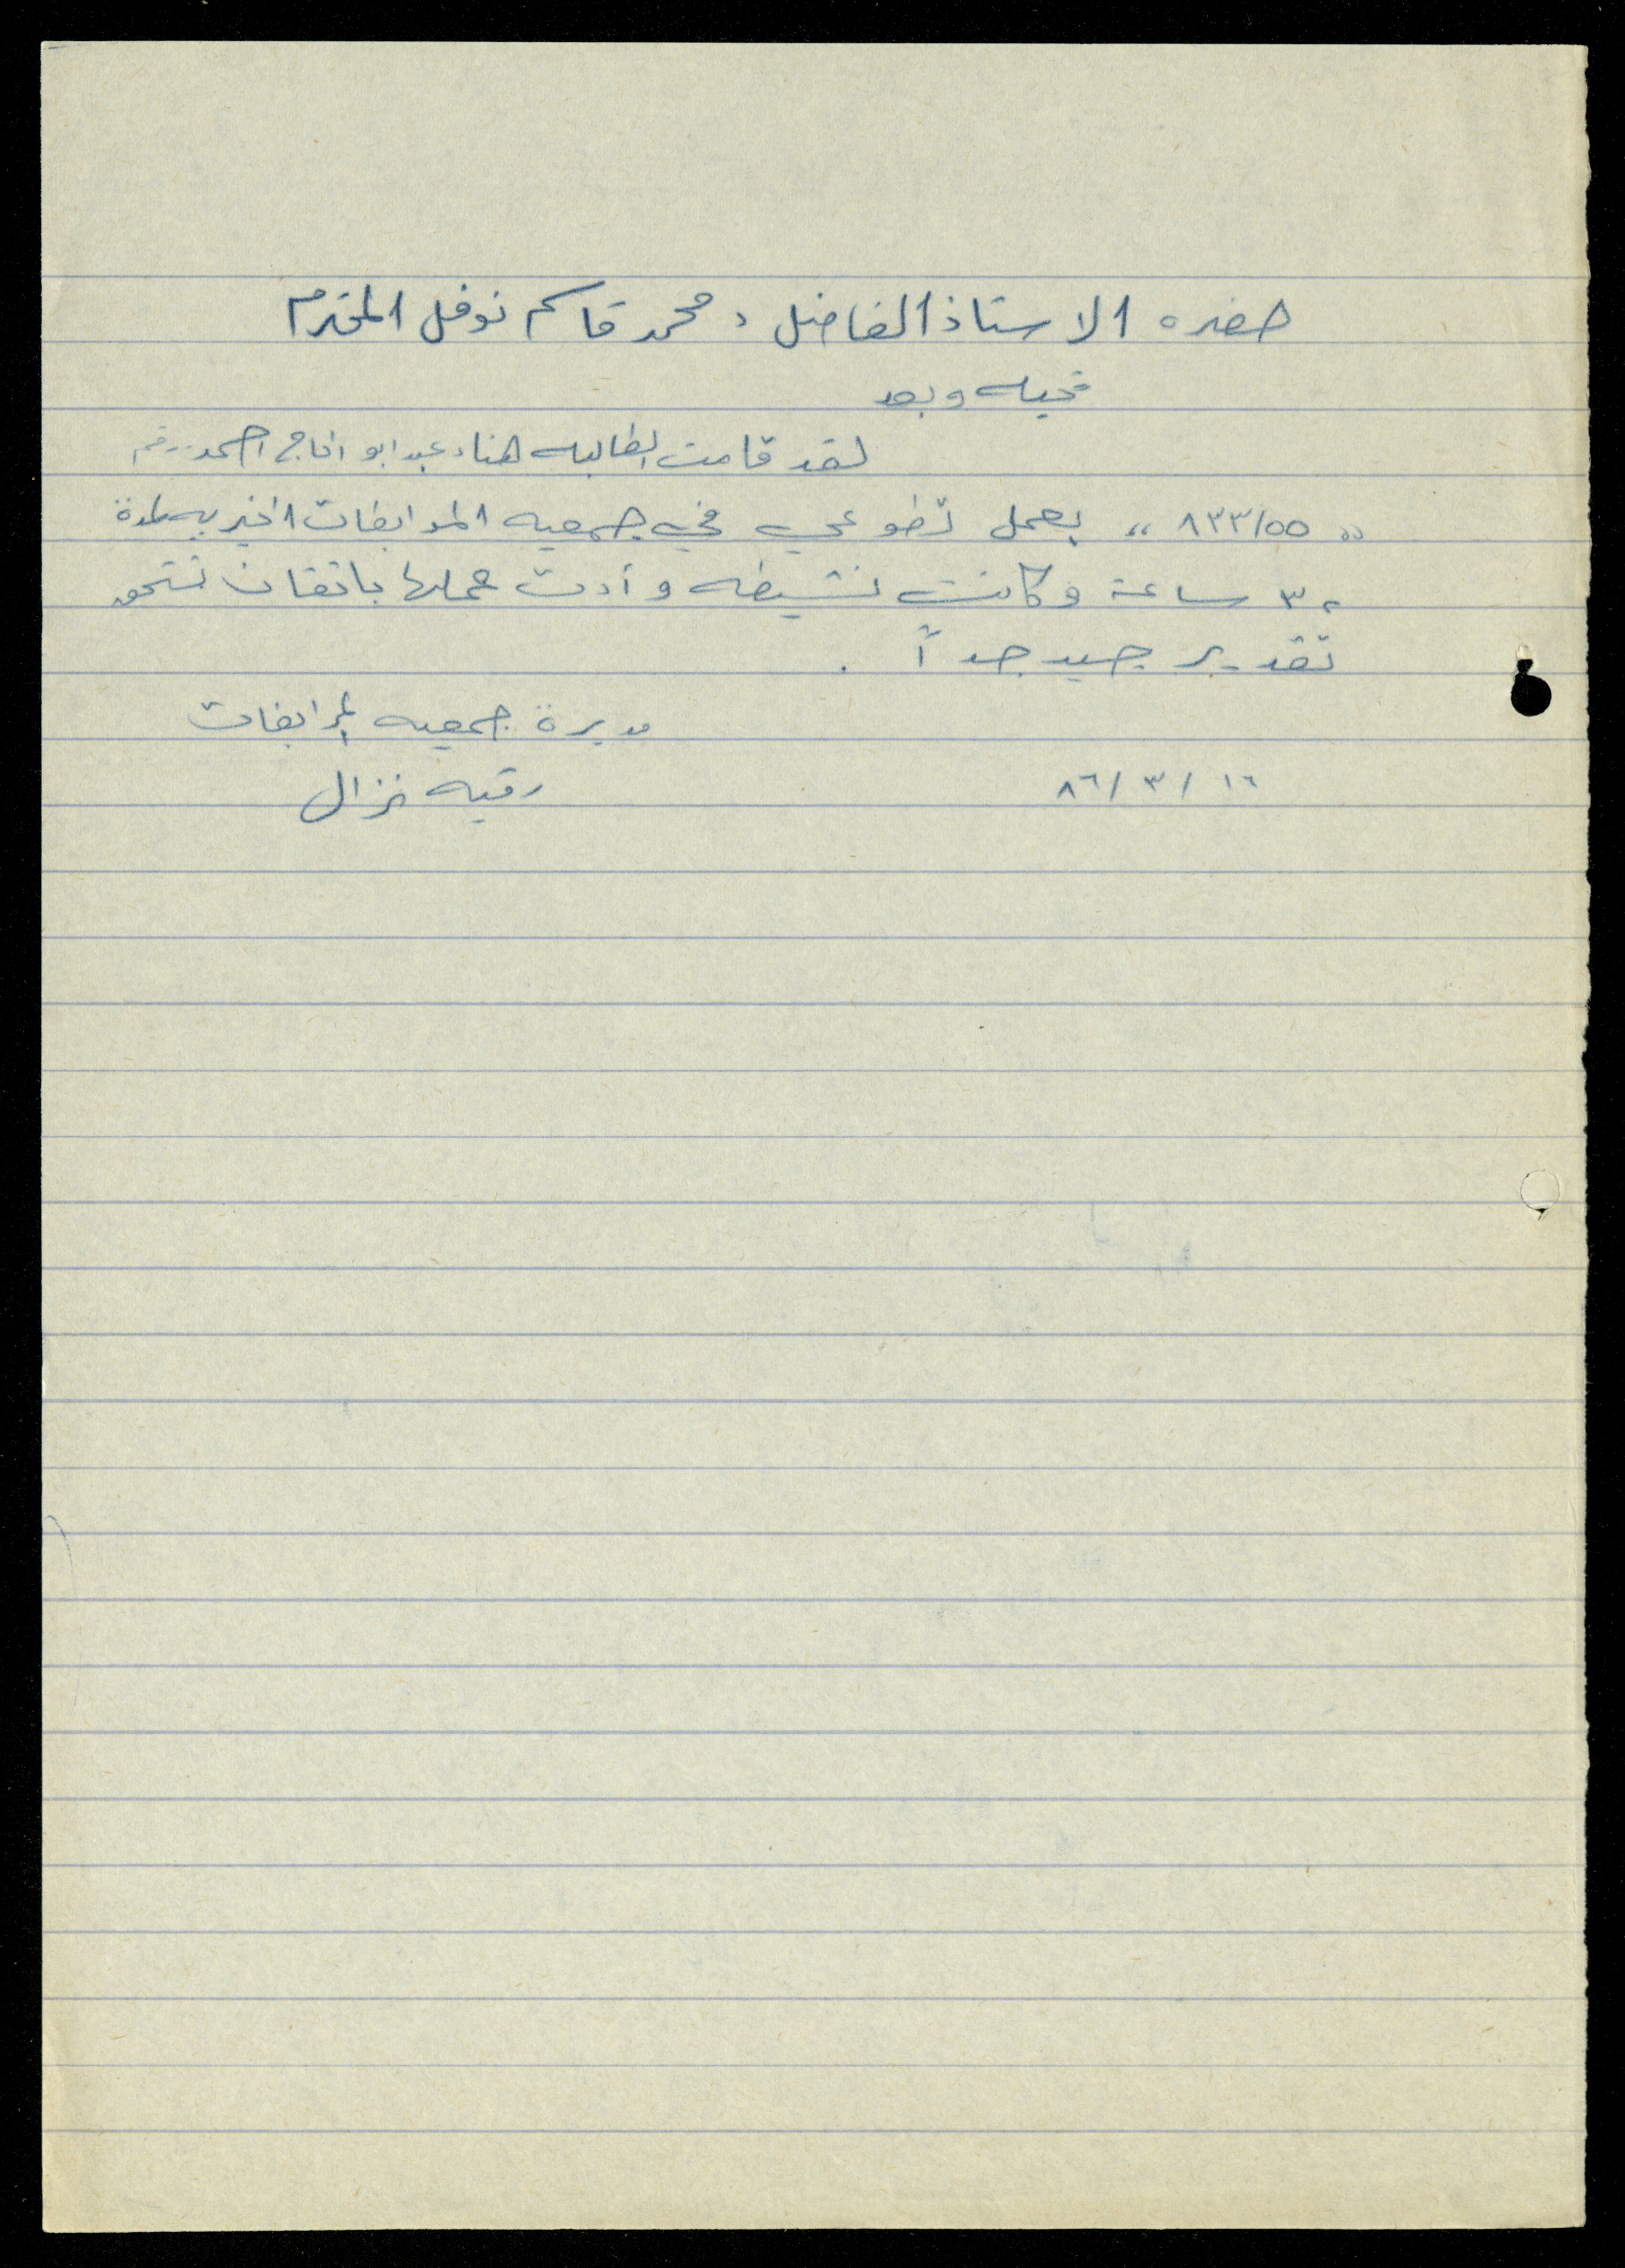 حضره الاستاذ الفاضل د محمد قاسم نوفل المحترم
تحيه وبعد
لقد قامت الطالبه هناء عبد ابو الحاج احمد رقم
"٨٣٣/٥٥" بعمل تطوعي في جمعيه المرابطات الخيريه لمدة
٣٢ ساعة وكانت نشيطه وأدت عملها باتقان تستحق
تقدير جيد جداً .
مديرة جمعيه المرابطات
١٦ / ٣ / ٨٦ رقيه نزال